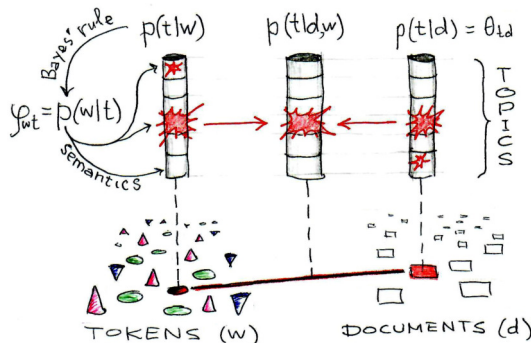 Bayes' rule
p(t|w)
p(t|d,w)
p(t|d) = θtd
φwt = p(w|t)
Semantics
TOPICS
TOKENS (w)
DOCUMENTS (d)